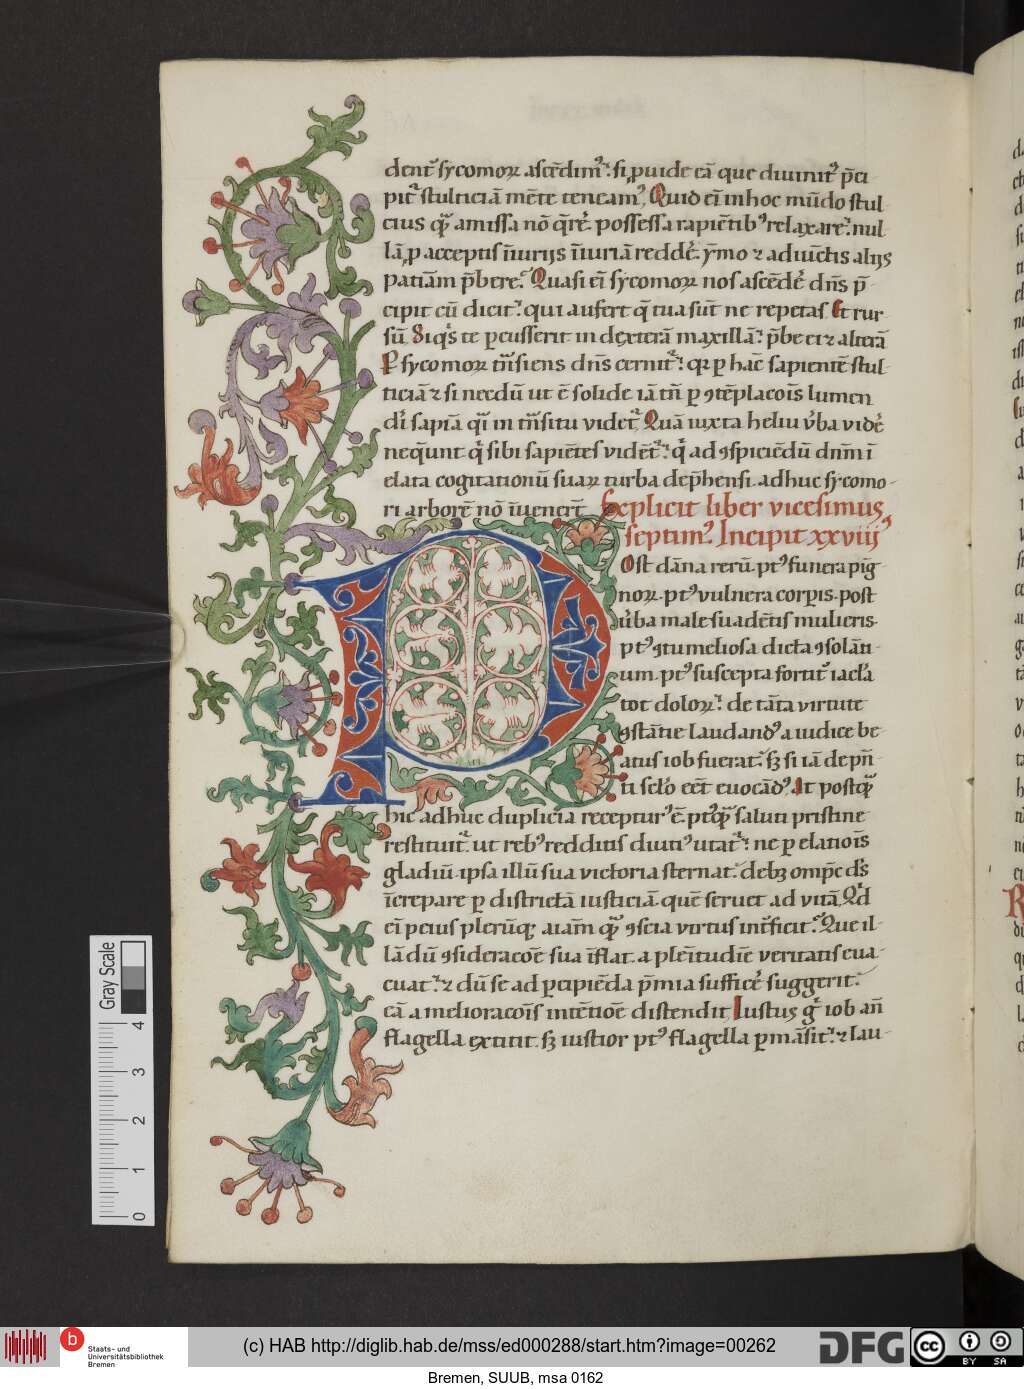 dent̄ sycomoꝝ ascēdim᷒. si ꝓuide eā que diuinit᷒ p̄ci
pit᷒ stulticiā mēte teneam᷒. Quid eī in hoc mūdo stul
cius q̄ꝫ amissa nō q̄rē. possessa rapiētib᷒ relaxare. nul
lā ꝓ acceptis iīurijs iīuriā reddē. ymo ⁊ adiūctis alijs
patiām p̄bere. Quasi eī sycomoꝝ nos ascēdē dn̄s p̄
cipit cū dicit. qui aufert q̄ tua sūt ne repetas Et rur
sū Si q̄s te ꝑcusserit in dexterā maxillā. p̄be ei ⁊ alterā
Ꝑ sycomoꝝ tn̄siens dn̄s cernit᷒. qꝛ ꝑ hāc sapientē stul
ticiā ⁊ si needū ut ē solide iā tn̄ ꝑ ꝯtēplacoīs lumen
dī sapīa q̄i in tn̄situ videt᷒ Quā iuxta heliu v̄ba vidē
neq̄unt q̄ sibi sapiētes vidēt᷒. q̄ ad ꝯspiciēdū dnm̄ ī
elata cogitationū suaꝝ turba dep̄hensi. adhuc sycomo
ri arborē nō iūenerēt
Explicit liber vicesimus
septim᷒. Incipit xxviij
P
Ost dāna rerū. pt᷒ funera pig
noꝝ. pt᷒ vulnera corꝑis. post
v̄ba male suadētis mulieris.
pt᷒ ꝯtumeliosa dicta ꝯsolāti
um. pt᷒ suscepta fortit᷒ iacl̄a
tot doloꝝ. de tāta virtute
ꝯstātie laudand᷒ a iudice be
atus iob fuerat. sꝫ si iā de pn̄
ti sclo eēt euocād᷒. At postq̄ꝫ
hic adhuc duplicia receptur᷒ ē. ptq̄ꝫ saluti pristine
restituit᷒. ut reb᷒ redditis diuti᷒ utat᷒. ne ꝑ elatiois
gladiū. ipsa illū sua victoria sternat. debꝫ omp̄c ds̄
īcrepare ꝑ districtā iusticiā quē seruet ad vitā. Qd
eī peius plerūqꝫ aiām q̄ꝫ ꝯscia virtus int̄ficit. Que il
lā dū ꝯsideracoē sua īflat. a plēitudīe veritatis eua
cuat. ⁊ dū se ad ꝑcipiēda p̄mia sufficē suggerit.
eā a melioracoīs intētioē distendit Iustus g̊ iob an̄
flagella extitit. sꝫ iustior pt᷒ flagella ꝑmāsit. ⁊ lau
Gray Scale
4
3
2
1
0
b
Staats- und
Universitätsbibliothek
Bremen
(c) HAB http://diglib.hab.de/mss/ed000288/start.htm?image=00262
DFG
cc BY SA
Bremen, SUUB, msa 0162